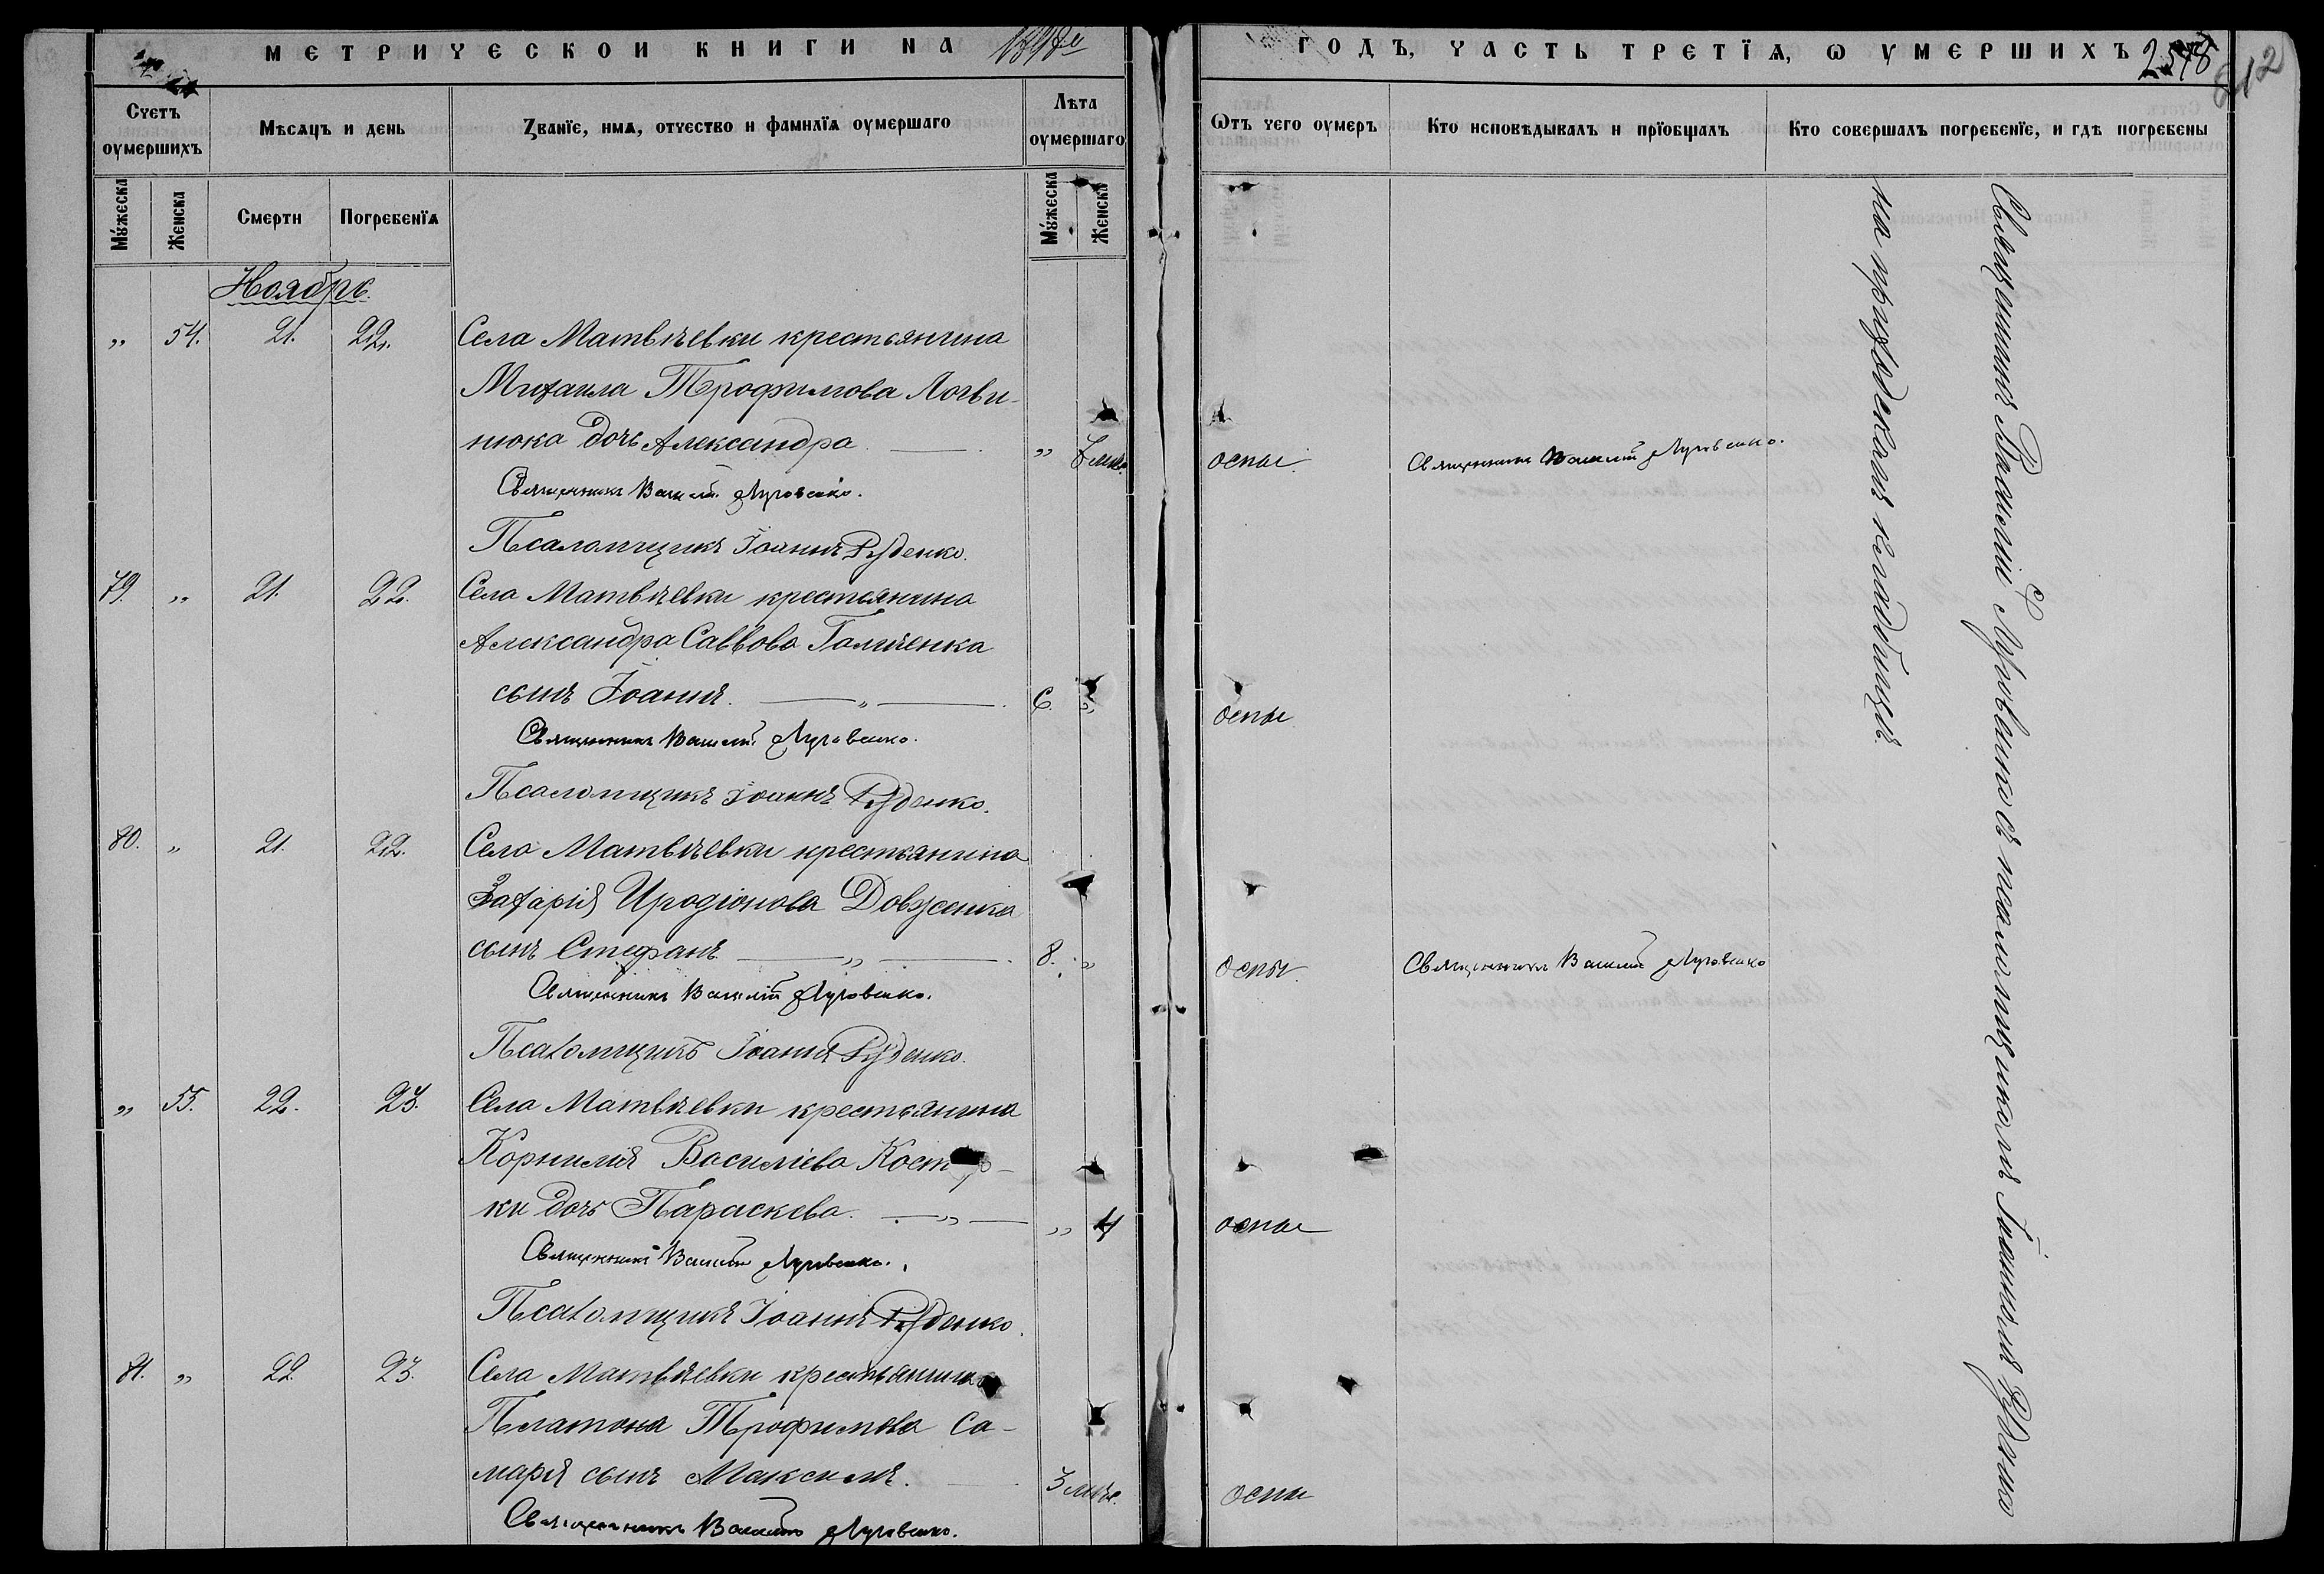 МЕТРИЧЕСКОИ КНИГИ НА
ГОДЪ, ЧАСТЬ ТРЕТЇѦ, Ѡ УМЕРШИХЪ
2578
612
Счетъ оумершихъ
Мѣсѧцъ и день
Званїе, имѧ, отчество и фамилїѧ оумершаго
Лѣта оумершаго
Ѿтъ чего оумеръ
Кто исповѣдывалъ и прїобщалъ
Кто совершалъ погребенїе, и гдѣ погребены
Мужеска
Женска
Смерти
Погребенїѧ
Мужеска
Женска
Ноябрь.
„ 54. 21. 22. Села Матвѣевки крестьянина
Михаила Трофимова Логви-
нюка дочь Александра „ оспы. Священникъ Василій Луговенко.
Священникъ Василій Луговенко.
Псаломщикъ Іоаннъ Руденко.
79. „ 21. 22. Села Матвѣевки крестьянина
Александра Саввова Галченка
сынъ Іоаннъ. „ 6. „ оспы
Священникъ Василій Луговенко.
Псаломщикъ Іоаннъ Руденко.
80. „ 21. 22. Села Матвѣевки крестьянина
Захарія Иродіонова Довженка
сынъ Стефанъ „ 8. „ оспы Священникъ Василій Луговенко
Священникъ Василій Луговенко.
Псаломщикъ Іоаннъ Руденко.
„ 55. 22. 23. Села Матвѣевки крестьянина
Корнилія Василіева
ки дочь Параскева. „ „ 4 оспы
Священникъ Василій Луговенко.
Псаломщикъ Іоаннъ Руденко.
81. „ 22. 23. Села Матвѣевки крестьянина
Платона Трофимова Са-
маря сынъ Максимъ. 3 мѣс. оспы
Священникъ Василій Луговенко.
Священникъ Василій Луговенко съ псаломщикомъ Іоанномъ Руденко
на приходскомъ кладбищѣ.